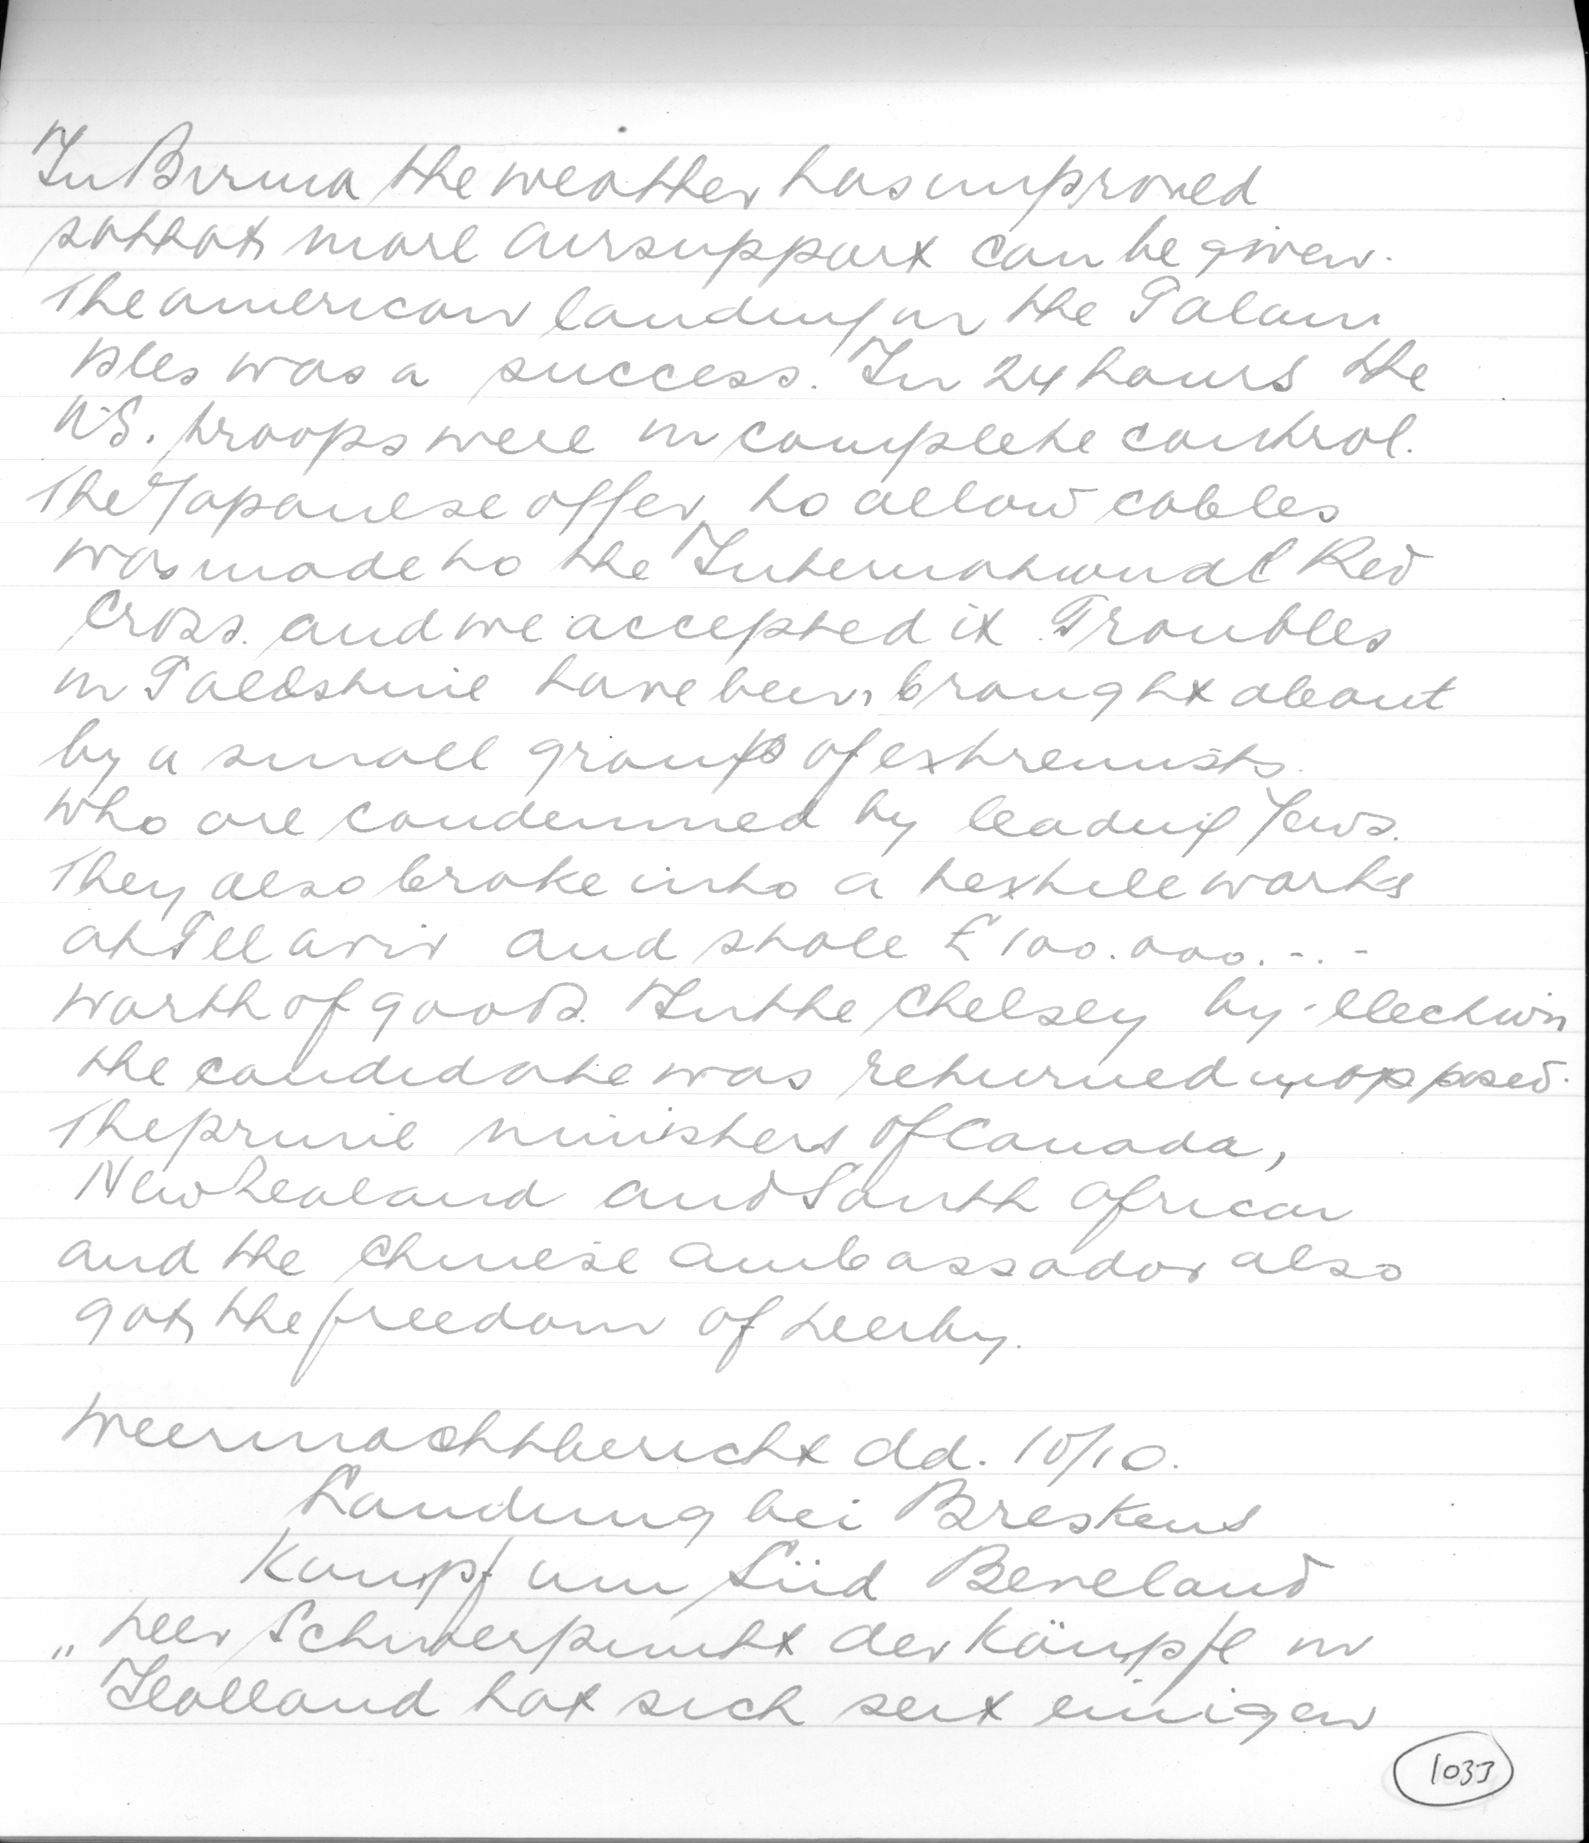 In Birma the weather has improved
so that more airsupport can be given.
The american landing on the Palau
isles was a success. In 24 hours the
U.S. troops were in complete control.
The Japanese offer to allow cables
was made to the International Red
Cross. and we accepted it. Troubles
in Palestine have been brought about
by a small group of extremists.
who are condemned by leading Jews.
They also broke into a textile works
at Tell aviv and stole £ 100.000.-.-
worth of goods. In the Chelsey by-election
the candidate was returned unopposed.
The prime ministers of Canada,
New Zealand and South African
and the Chinese ambassador also
got the freedom of
Weermachtbericht dd. 10/10.
Landung bei Breskens
Kampf um Süd Beveland
„ Der Schwerpunkt der Kämpfe in
Holland hat sich seit einigen
1033